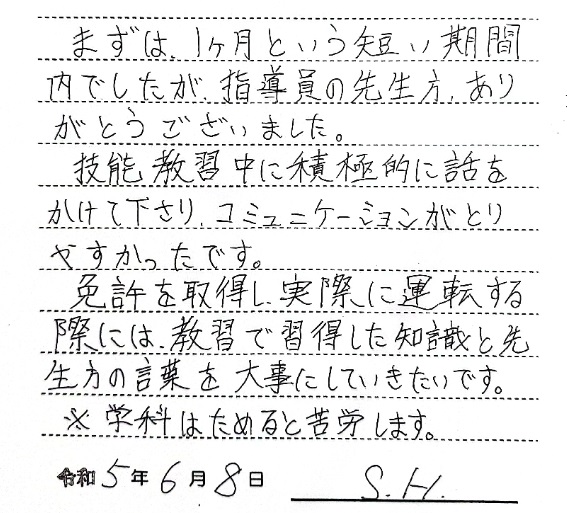 まずは、1ヶ月という短い期間
内でしたが、指導員の先生方、あり
がとうございました。
技能教習中に積極的に話を
かけて下さり、コミュニケーションがとり
やすかったです。
免許を取得し、実際に運転する
際には、教習で習得した知識と先
生方の言葉を大事にしていきたいです。
※学科はためると苦労します。
令和5年6月8日 S.H.